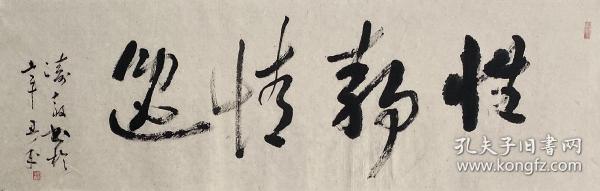 性静情逸
辛丑年
书于
孔夫子旧书网
www.kongfz.com